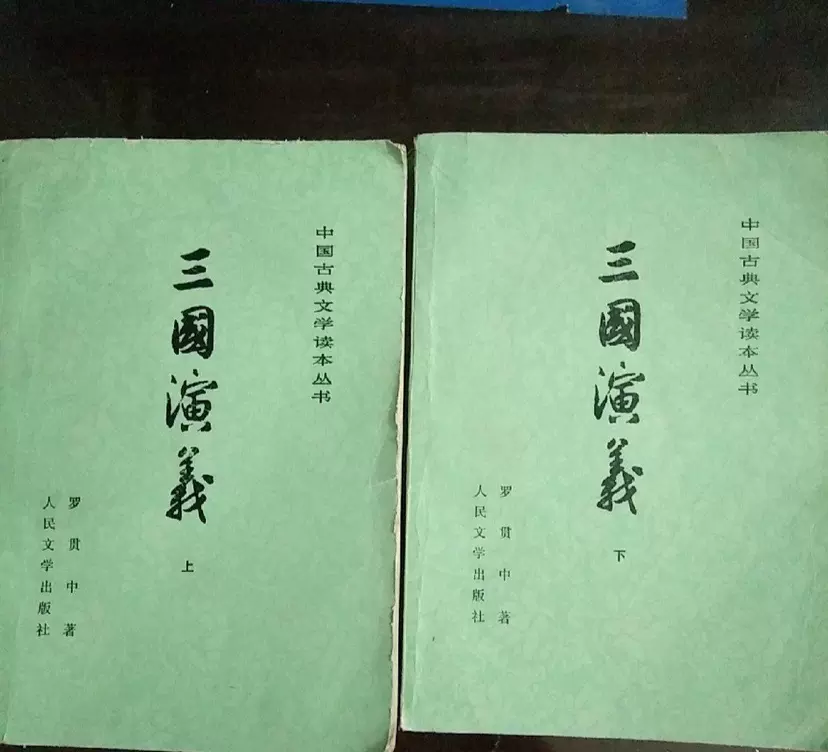 中国古典文学读本丛书
三國演義
上
罗贯中著
人民文学出版社
中国古典文学读本丛书
三國演義
下
罗贯中著
人民文学出版社